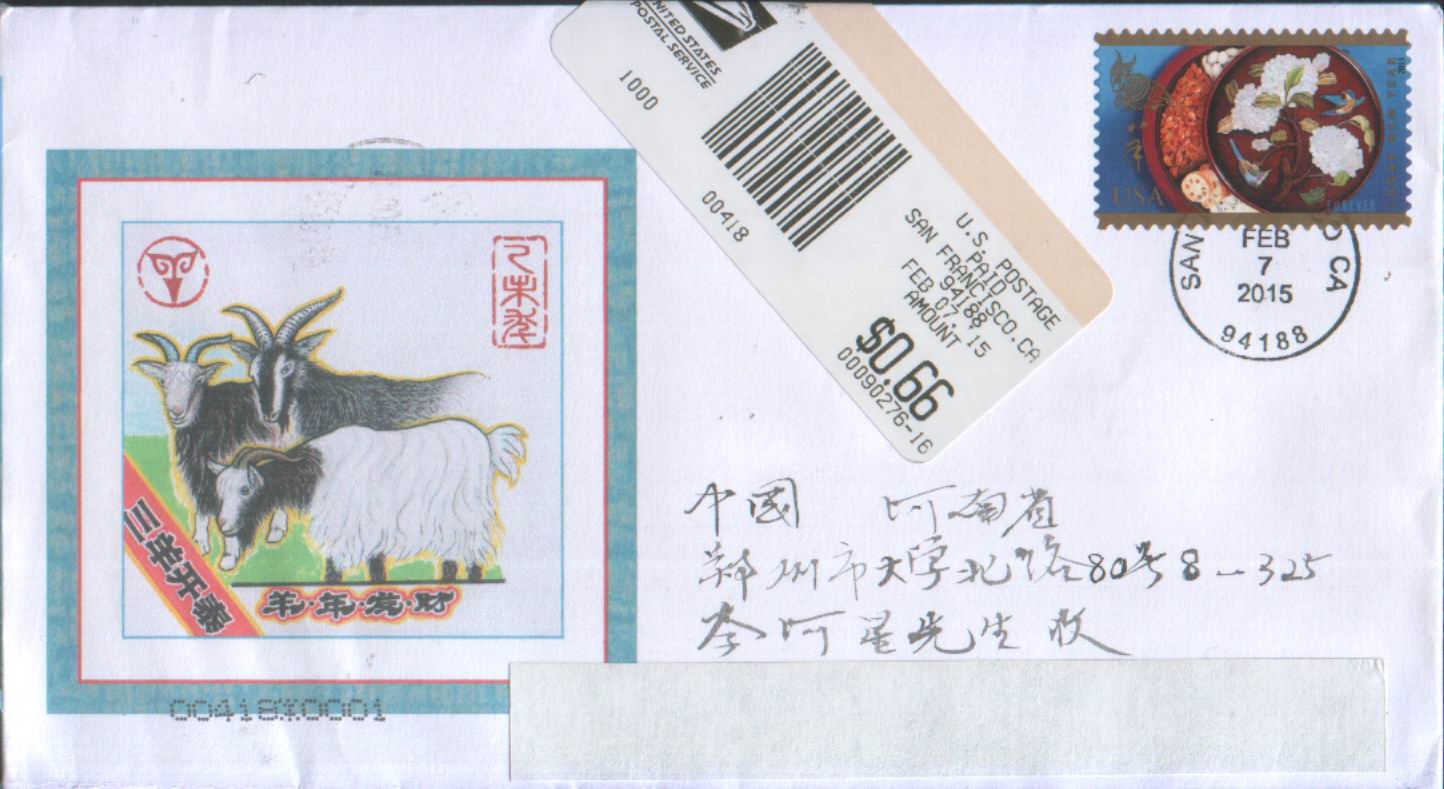 UNITED STATES
POSTAL SERVICE
1000
00418
U.S. POSTAGE
PAID
SAN FRANCISCO,CA
94188
FEB 07, 15
AMOUNT
$0.66
00090276-16
USA
FOREVER
LUNAR NEW YEAR
2015
FEB
7
2015
CA
94188
乙未年
三羊开泰
羊·年·发·财
中國 河南省
鄭州市大学北路80号8-325
李阿星先生收
00418X0001